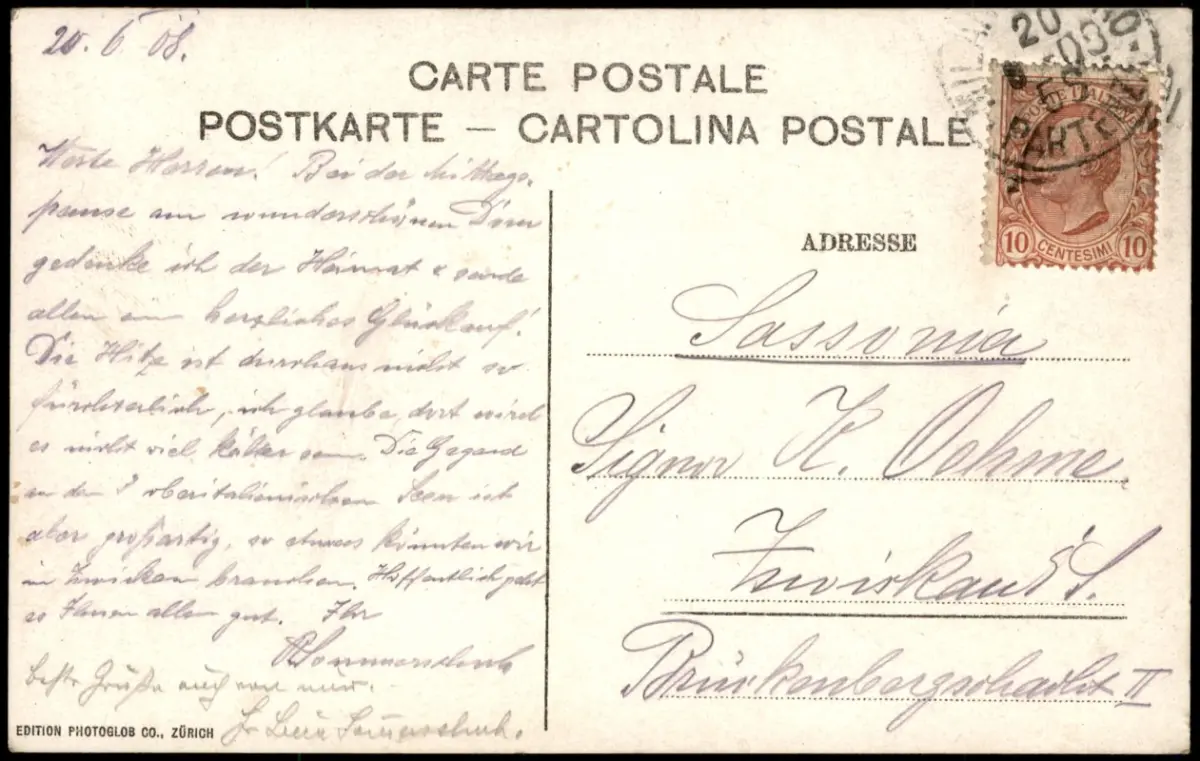 20. 6. 08.
CARTE POSTALE
POSTKARTE — CARTOLINA POSTALE
Werte Herren! Bei der Mittags-
pause am wunderschönen
gedenke ich der Heimat & sende
allen ein herzliches Glückauf!
Die Hitze ist durchaus nicht so
fürchterlich, ich glaube dort wird
es nicht viel kälter sein. Die Gegend
an den 3 oberitalienischen Seen ist
aber großartig, so etwas könnten wir
in Zwickau brauchen. Hoffentlich geht
es Ihnen allen gut. Ihr
Sommerschuh
beste Grüße auch von mir.
EDITION PHOTOGLOB CO., ZÜRICH
MILA
20
08
PARTE
POSTE ITALIANE
10 CENTESIMI 10
ADRESSE
Sassonia
Signor K. Oehme
Zwickau i/S.
Brückenbergschacht II